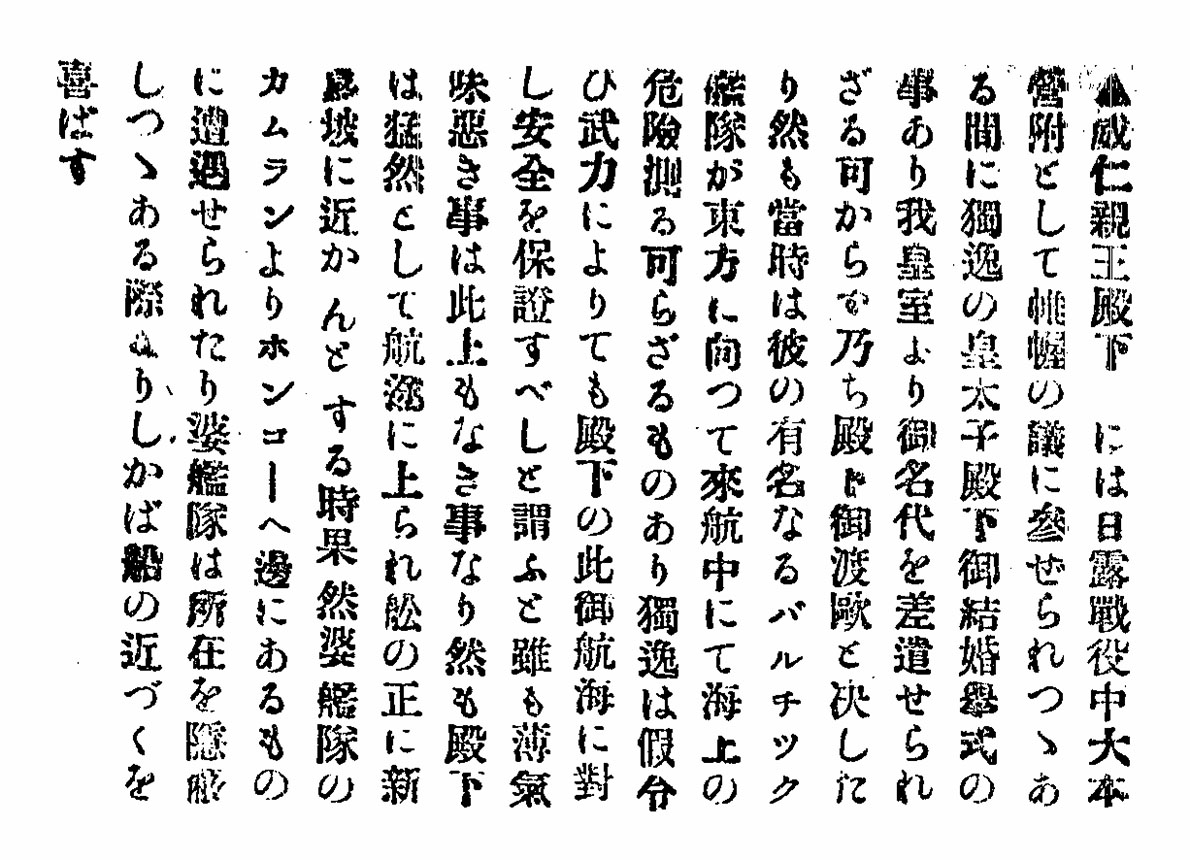 ▲威仁親王殿下　には日露戰役中大本
營附として帷幄の議に參せられつゝあ
る間に獨逸の皇太子殿下御結婚擧式の
事あり我皇室より御名代を差遣せられ
ざる可からず乃ち殿下御渡歐と决した
り然も當時は彼の有名なるバルチック
艦隊が東方に向つて來航中にて海上の
危險測る可らざるものあり獨逸は假令
ひ武力によりても殿下の此御航海に對
し安全を保證すべしと謂ふと雖も薄氣
味惡き事は此上もなき事なり然も殿下
は猛然として航途に上られ舩の正に新
嘉坡に近かんとする時果然婆艦隊の
カムランよりホンコーヘ邊にあるもの
に遭遇せられたり婆艦隊は所在を隱晦
しつゝある際なりしかば船の近づくを
喜ばす